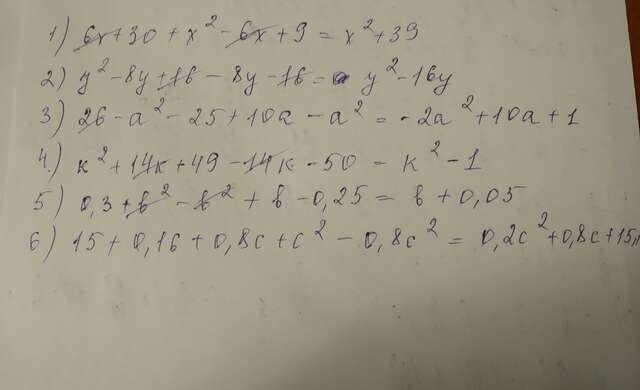 1) 6x+30+x²-6x+9=x²+39
2) y²-8y+16-8y-16=y²-16y
3) 26-a²-25+10a-a²=-2a²+10a+1
4.) к²+14к+49-14к-50=к²-1
5) 0,3+b²-b²+b-0,25=b+0,05
6) 15+0,16+0,8c+c²-0,8c²=0,2c²+0,8c+15,